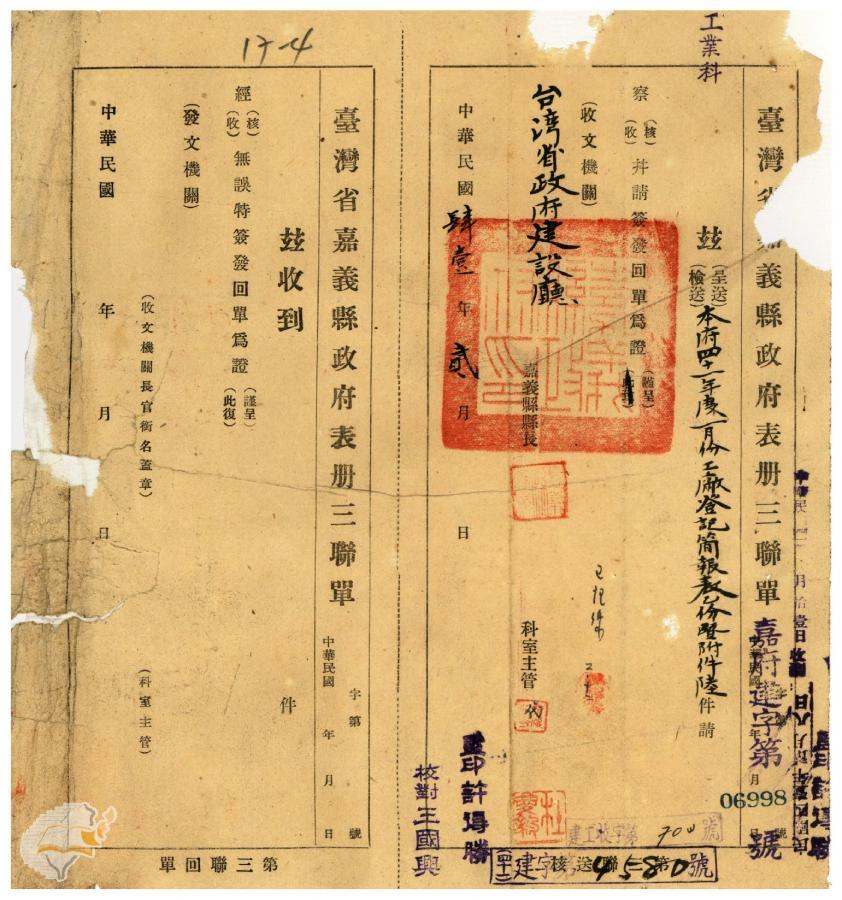 工業科
臺灣省嘉義縣政府表册三聯單
嘉府建字第 號
06998
茲(呈送)(檢送)本府四十一年度一月份工廠登記簡報表份暨附件陸件請
察(核)(收)并請簽發回單爲證(謹呈)
(收文機關)
台湾省政府建設廳
嘉義縣縣長
科室主管
中華民國肆壹年貳月 日
監印許得勝
校對王國興
建工收字第700號
(四十一)建字第4580號
第三聯送核
17-4
臺灣省嘉義縣政府表册三聯單
中華民國 年 月 日
字第 號
茲收到 件
經(核)(收)無誤特簽發回單爲證(謹呈)(此復)
(發文機關)
(收文機關長官銜名蓋章)
(科室主管)
中華民國 年 月 日
第三聯回單